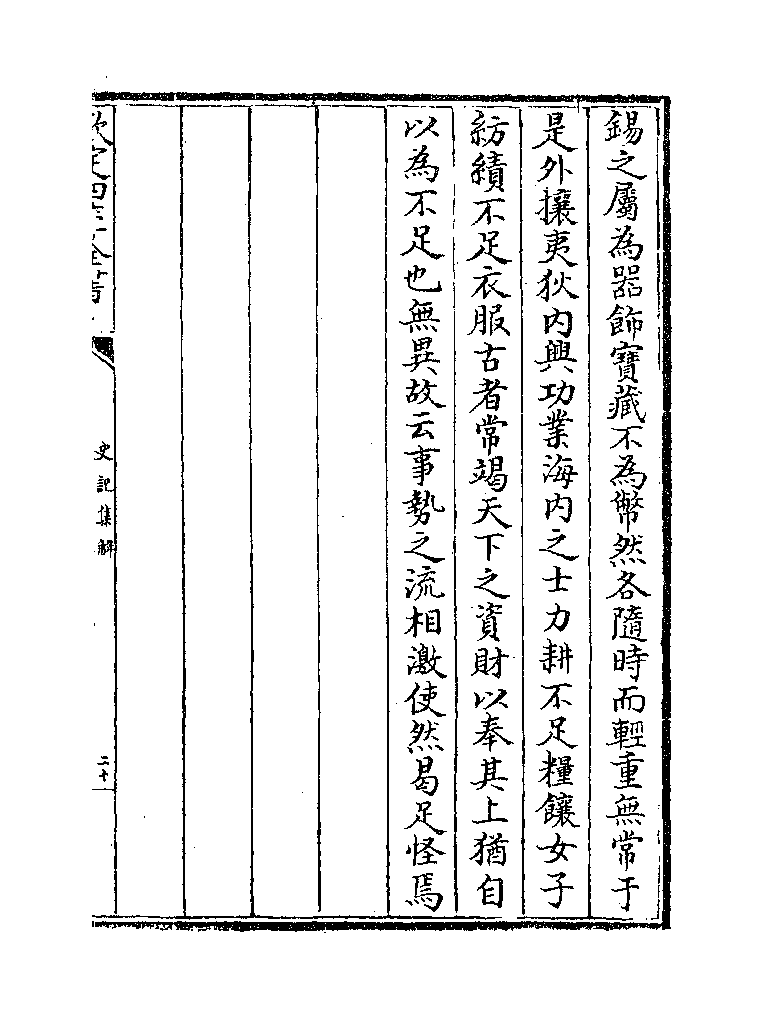 錫之屬為器飾寶藏不為幣然各隨時而輕重無常于
是外攘夷狄内興功業海内之士力耕不足糧饟女子
紡績不足衣服古者常竭天下之資財以奉其上猶自
以為不足也無異故云事勢之流相激使然曷足怪焉
欽定四庫全書
史記集解
二十